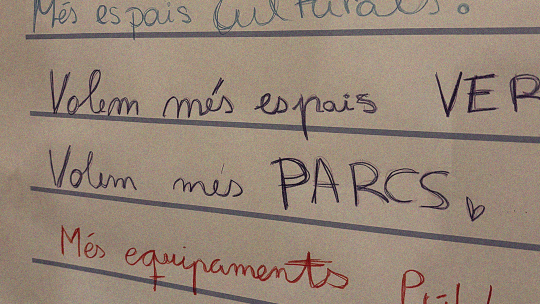 Més espais Culturals.
Volem més espais VER
Volem més PARCS
Més equipaments